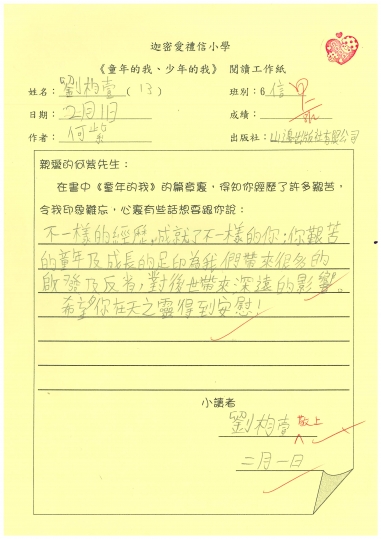 迦密愛禮信小學
《童年的我、少年的我》 閱讀工作紙
姓名：劉栒壹 （13） 班別：6信
日期：2月1日 成績：甲
作者：何紫 出版社：山邊出版社有限公司
親愛的何紫先生：
在書中《童年的我》的篇章裏，得知你經歷了許多艱苦，
令我印象難忘，心裏有些話想要跟你說：
不一樣的經歷，成就了不一樣的你；你艱苦
的童年及成長的足印為我們帶來很多的
啟發及反省，對後世帶來深遠的影響。
希望你在天之靈得到安慰！
小讀者
劉栒壹 敬上
二月一日